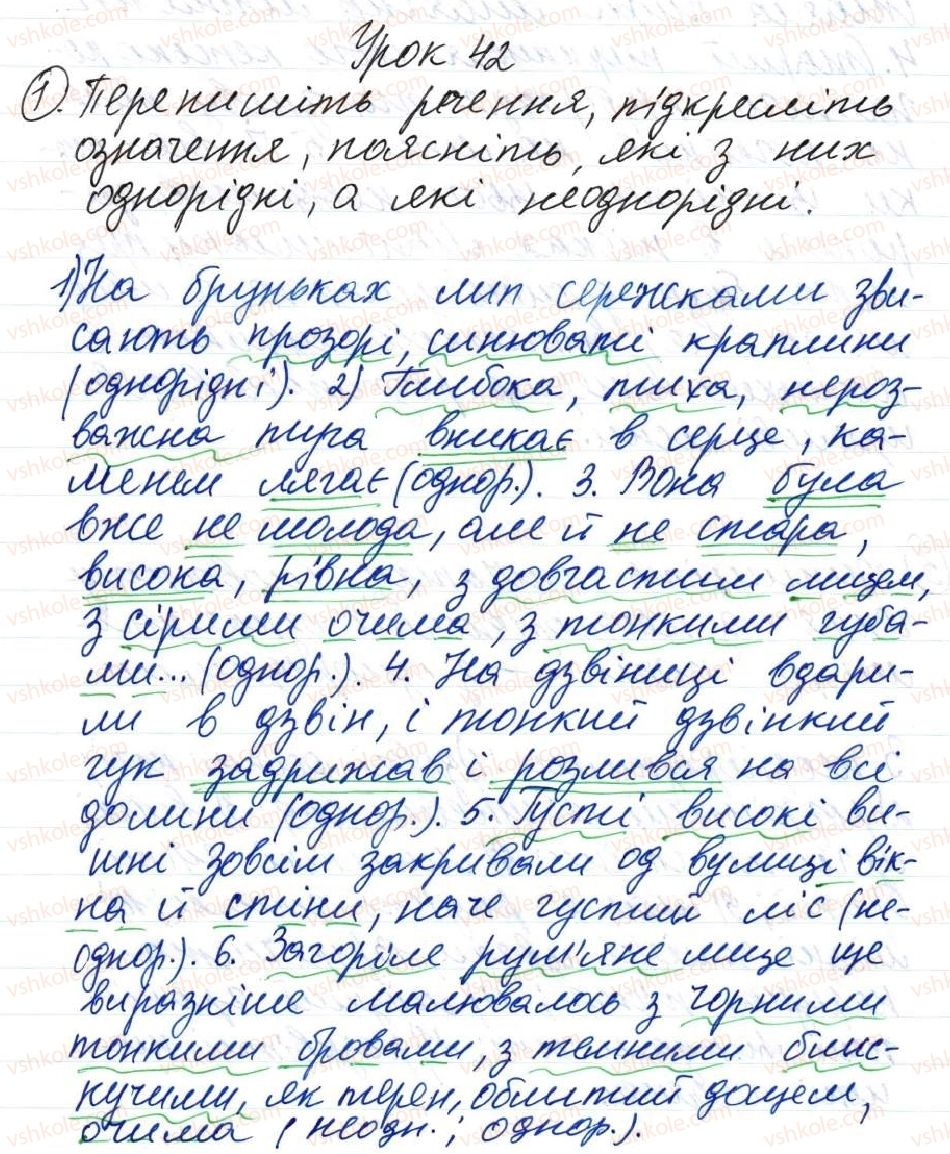 Урок 42
1. Перепишіть речення, підкресліть
означення, поясніть, які з них
однорідні, а які неоднорідні.
1) На бруньках лип сережками зви-
сають прозорі, синюваті краплини
(однорідні). 2) Глибока, тиха, нероз-
важна туга вникає в серце, ка-
менем лягає (однор.). 3. Вона була
вже не молода, але й не стара,
висока, рівна, з довгастим лицем,
з сірими очима, з тонкими губа-
ми... (однор.). 4. На дзвіниці вдари-
ли в дзвін, і тонкий дзвінкий
гук задрижав і розлився на всі
долини (однор.). 5. Густі високі ви-
шні зовсім закривали од вулиці вік-
на й стіни, наче густий ліс (не-
однор.). 6. Загоріле рум'яне лице ще
виразніше малювалось з чорними
тонкими бровами, з темними блис-
кучими, як терен, облитий дощем,
очима (неодн.; однор.).